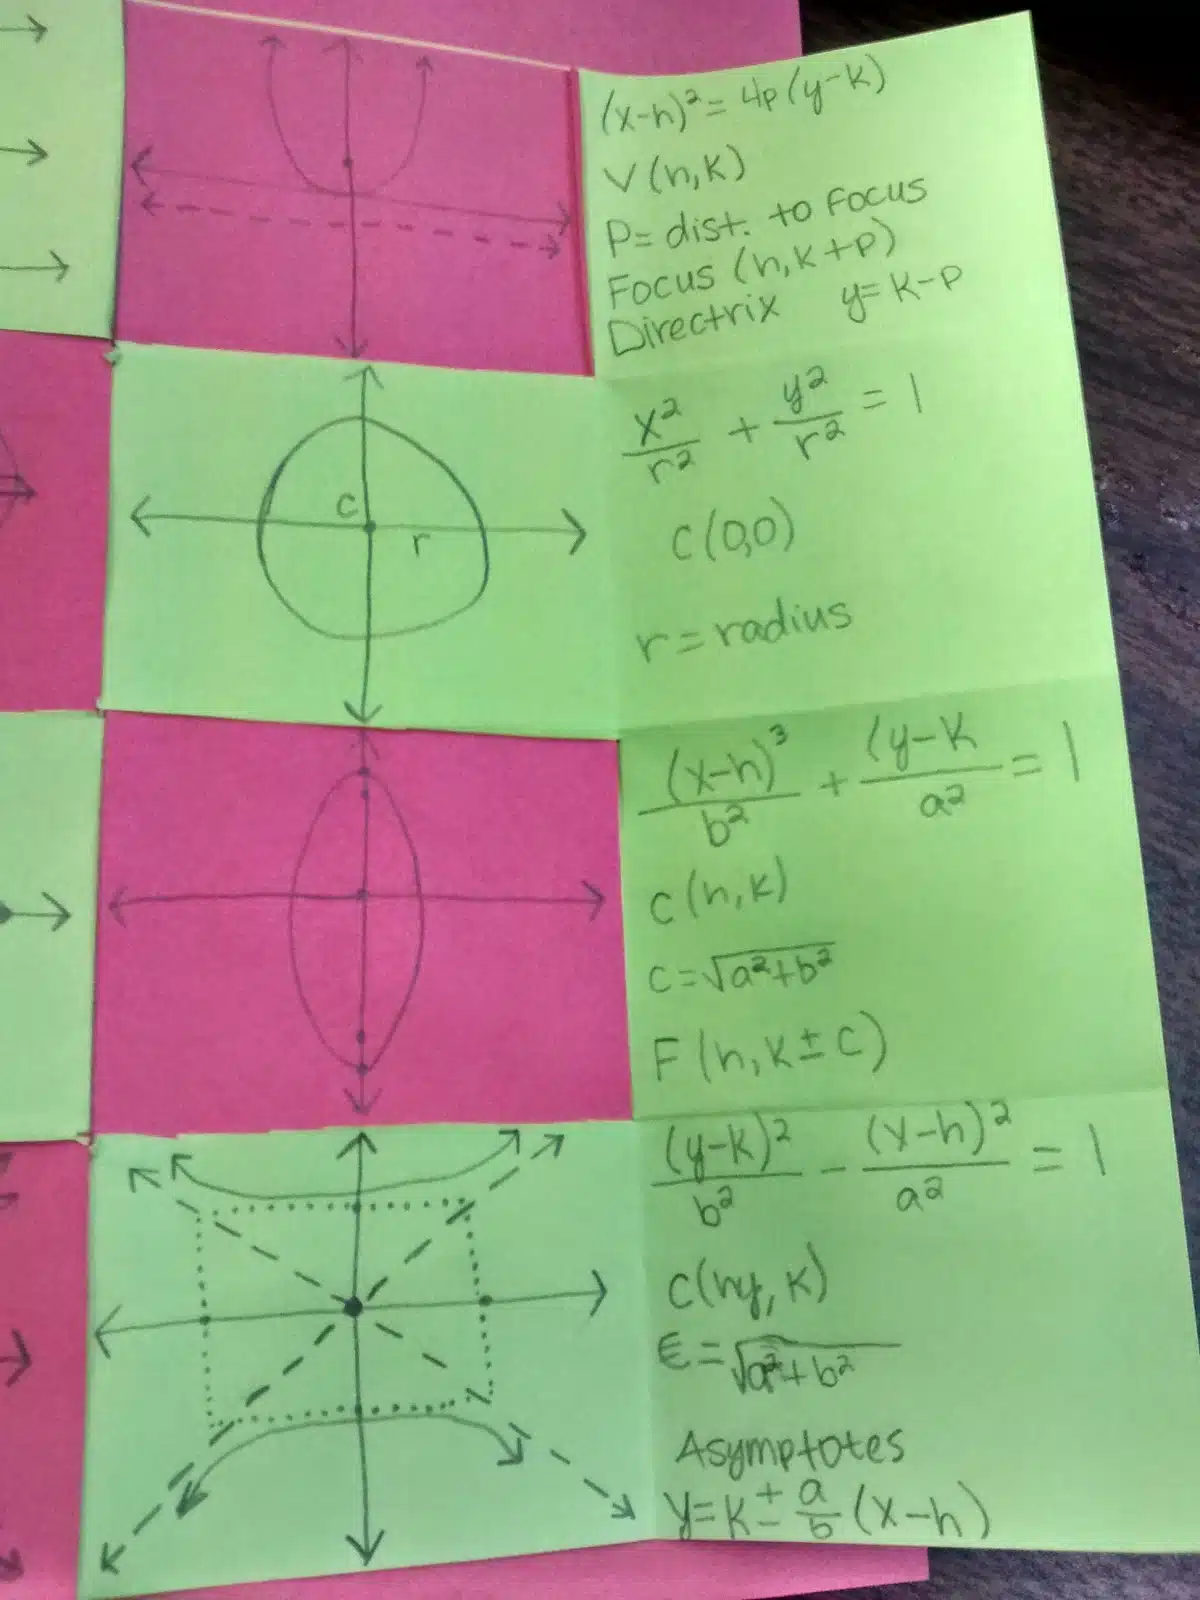 (x-h)² = 4p(y-k)
V(h,k)
P= dist. to Focus
Focus (h,k+p)
Directrix y=k-p
C
r
x²/r² + y²/r² = 1
C(0,0)
r=radius
(x-h)³/b² + (y-k/a² = 1
C(h,k)
c=√a²+b²
F(h,k±c)
(y-k)²/b² - (x-h)²/a² = 1
C(hy,k)
€=√a²+b²
Asymptotes
y=k±a/b(x-h)